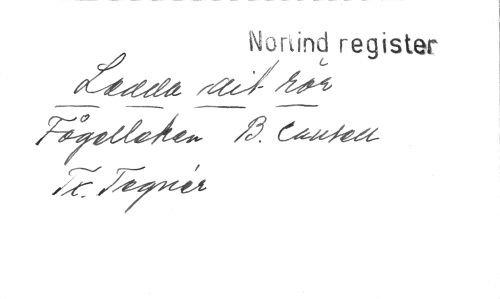 Norlind register
Ladda dit rör
Fågelleken B. Crusell
Tx. Tegnér